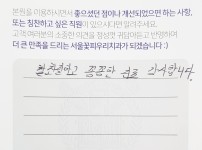 본원을 이용하시면서 좋으셨던 점이나 개선되었으면 하는 사항,
또는 칭찬하고 싶은 직원이 있으시다면 알려주세요.
고객 여러분의 소중한 의견을 정성껏 귀담아듣고 반영하여
더 큰 만족을 드리는 서울꽃피우리치과가 되겠습니다 :)
친절하고 꼼꼼한 진료 감사합니다.